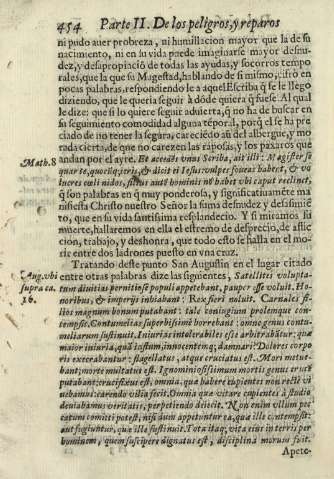 454 Parte II. De los peligros, y reparos
ni pudo auer probreza, ni humillacion mayor que la de su
nacimiento, ni en su vida puede imaginarse mayor desnu-
dez, y desapropiació de todas las ayudas, y socorros tempo
rales, que la que su Magestad, hablando de si mismo, cifrò en
pocas palabras, respondiendole a aquel Escriba q̃ se le llego
diziendo, que le queria seguir à dóde quiera q̃ fuese. Al qual
le dize: que si lo quiere seguir aduierta, q̃ no ha de buscar en
su seguimiento comodidad alguna téporal, porq̃ el se ha pre
ciado de no tener la segura, careciédo aũ del albergue, y mo
rada cierta, de que no carecen las raposas, y los paxaros que
Math.8 andan por el ayre. Et accedẽs vnus Scriba, ait illi: Magister se
quar te, quocũq; ieris, & dicit ei Iesus vulpes foueas habent, & vo
lucres cœli nidos, filius autẽ hominis nõ habet vbi caput reclinet,
q̃ son palabras en q̃ muy ponderosa, y significatiuaméte ma
nifiesta Christo nuestro Señor la suma desnudez, y desasimié
to, que en su vida santissima resplandecio. Y si miramos sũ
muerte, hallaremos en ella el estremo de desprecio, de aflic
ción, trabajo, y deshonra, que todo esto se halla en el mo-
rir entre dos ladrones puesto en vna cruz.
Tratando deste punto San Augustin en el lugar citado
Aug. vbi entre otras palabras dize las siguientes, Satellites volupta-
supra ca. tum diuitias perniciosè populi appetebant, pauper esse voluit. Ho-
16. noribus, & imperijs inhiabant: Rex fieri noluit. Carnales fi-
lios magnum bonum putabant: tale coniugium prolemque con-
tempsit. Contumelias superbissimè horrebant: omne genus contu-
meliarum sustinuit. Iniurias intolerabiles esse arbitrabãtur: quæ
maior iniuria, quã iustum, innocentemq; damnari? Dolores corpo
ris execrabantur: flagellatus, atque cruciatus est. Mori metue-
bant; morte multatus est. Ignominiosissimum mortis genus cruce
putabant: crucifixus est, omnia, quæ habere cupientes non rectè vi
uebamus: carendo vilia fecit. Omnia quæ vitare cupientes à studio
deuiabamus veritatis, perpetiendo deiecit. Non enim vllum pec
catum committi potest, nisi dum appetuntur ea, quæ ille contempsit:
aut fugiuntur, quæ ille sustinuit. Tota itaq; vita eius in terris per
hominem, quem suscipere dignatus est, disciplina morum fuit.
Apete-